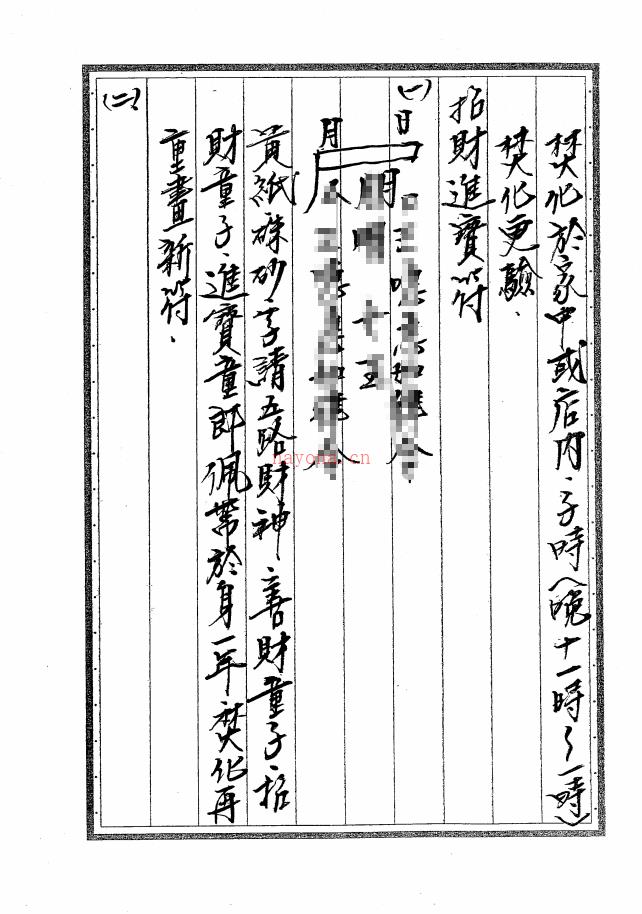 焚化於家中或店内、子時（晚十一時～一時）
焚化更驗、
招財進寶符
(一)
日
月
月
黃紙硃砂字請五路財神、善財童子、招
財童子、進寶童郎佩帶於身一年、焚化再
重畫新符、
(二)
nayona.cn